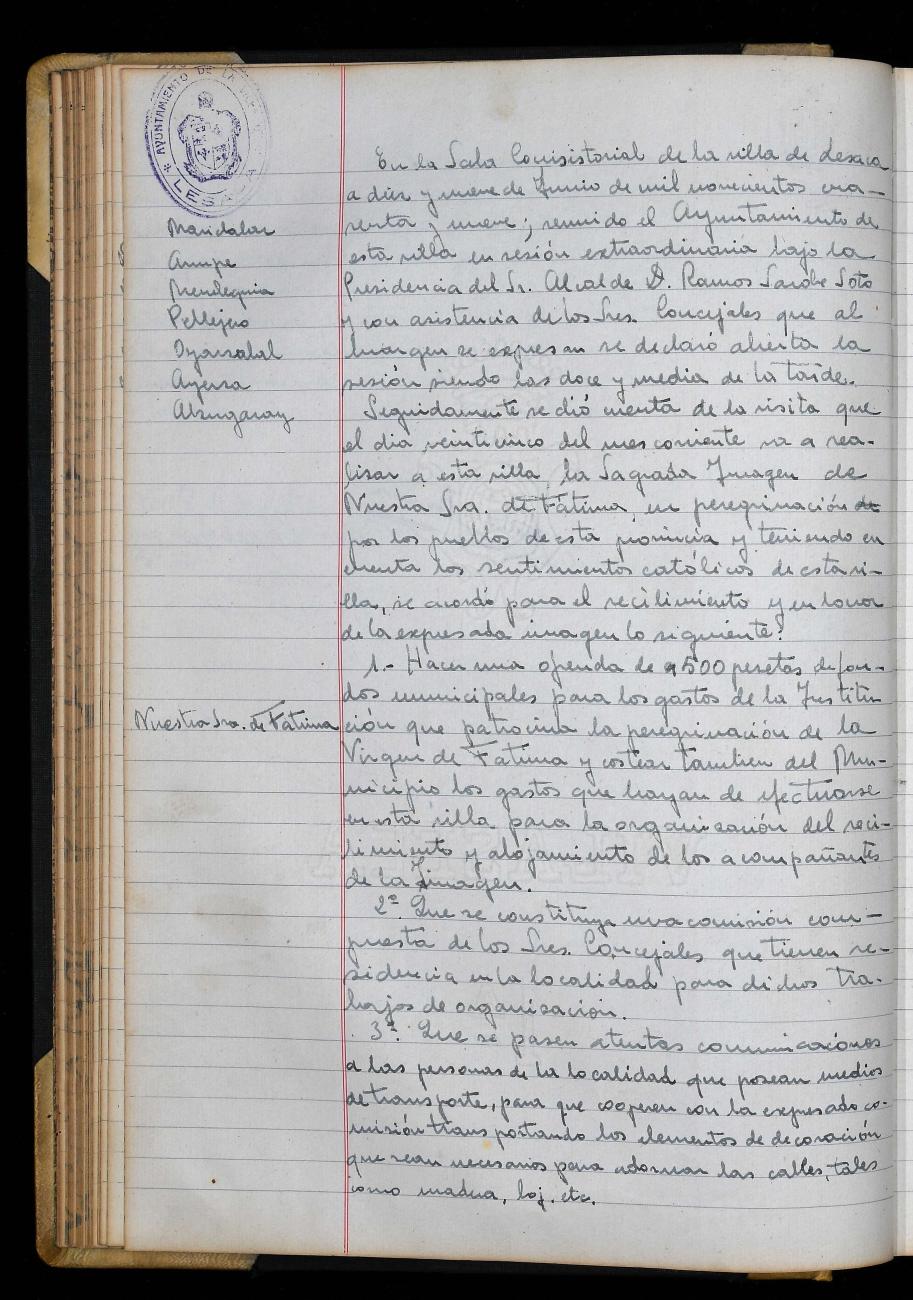 AYUNTAMIENTO DE LA VILLA
LESACA
En la Sala Consistorial de la villa de Lesaca
a diez y nueve de Junio de mil novecientos cua-
renta y nueve; reunido el Ayuntamiento de
esta villa en sesión extraordinaria bajo la
Presidencia del Sr. Alcalde D. Ramos Sarobe Soto
y con asistencia de los Sres. Concejales que al
margen se expresan se declaró abierta la
sesión siendo las doce y media de la tarde.
Mandalar
Mendeguia
Pellejero
Oyarzabal
Ayerra
Alzugaray
Seguidamente se dió cuenta de la visita que
el dia veinticinco del mes corriente va a rea-
lizar a esta villa, la Sagrada Imagen de
Nuestra Sra. de Fátima, en peregrinación
por los pueblos de esta provincia y teniendo en
cuenta los sentimientos católicos de esta vi-
lla, se acordó para el recibimiento y en honor
de la expresada imagen lo siguiente:
1.- Hacer una ofrenda de 500 pesetas de fon-
dos municipales para los gastos de la Institu
Nuestra Sra. de Fátima
ción que patrocina la peregrinación de la
Virgen de Fatima y costear tambien del Mu-
nicipio los gastos que hayan de efectuarse
en esta villa para la organización del reci-
bimiento y alojamiento de los acompañantes
de la Imagen.
2º. Que se constituya una comisión com-
puesta de los Sres. Concejales que tienen re-
sidencia en la localidad para dichos tra-
bajos de organización.
3º. Que se pasen atentas comunicaciones
a las personas de la localidad que posean medios
de transporte, para que cooperen con la expresada co-
misión transportando los elementos de decoración
que sean necesarios para adornar las calles, tales
como madera, boj. etc.